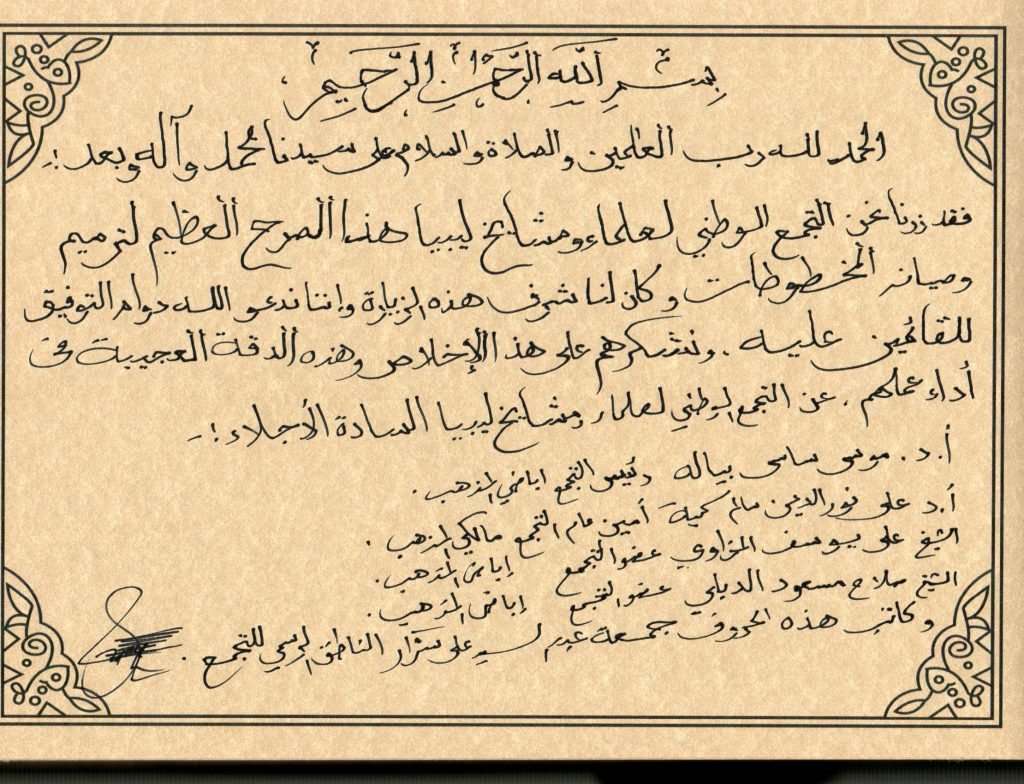 بسم الله الرحمن الرحيم
الحمد لله رب العالمين والصلاة والسلام على سيدنا محمد وآله وبعد :ـ
فقد زرنا نحن التجمع الوطني لعلماء ومشايخ ليبيا هذا الصرح العظيم لترميم
وصيانة المخطوطات وكان لنا شرف هذه الزيارة وإننا ندعو الله دوام التوفيق
للقائمين عليه . ونشكرهم على هذا الإخلاص وهذه الدقة العجيبة في
أداء عملهم . عن التجمع الوطني لعلماء ومشايخ ليبيا السادة الأجلاء :ـ
أ.د. موسى ساسى بياله رئيس التجمع اباضي المذهب .
أ.د على نور الدين سالم أمين عام التجمع مالكي المذهب .
الشيخ على يوسف عضو التجمع إباضى المذهب .
الشيخ صلاح مسعود عضو التجمع إباضى المذهب .
وكاتب هذه الحروف جمعة على الناطق الرسمي للتجمع .